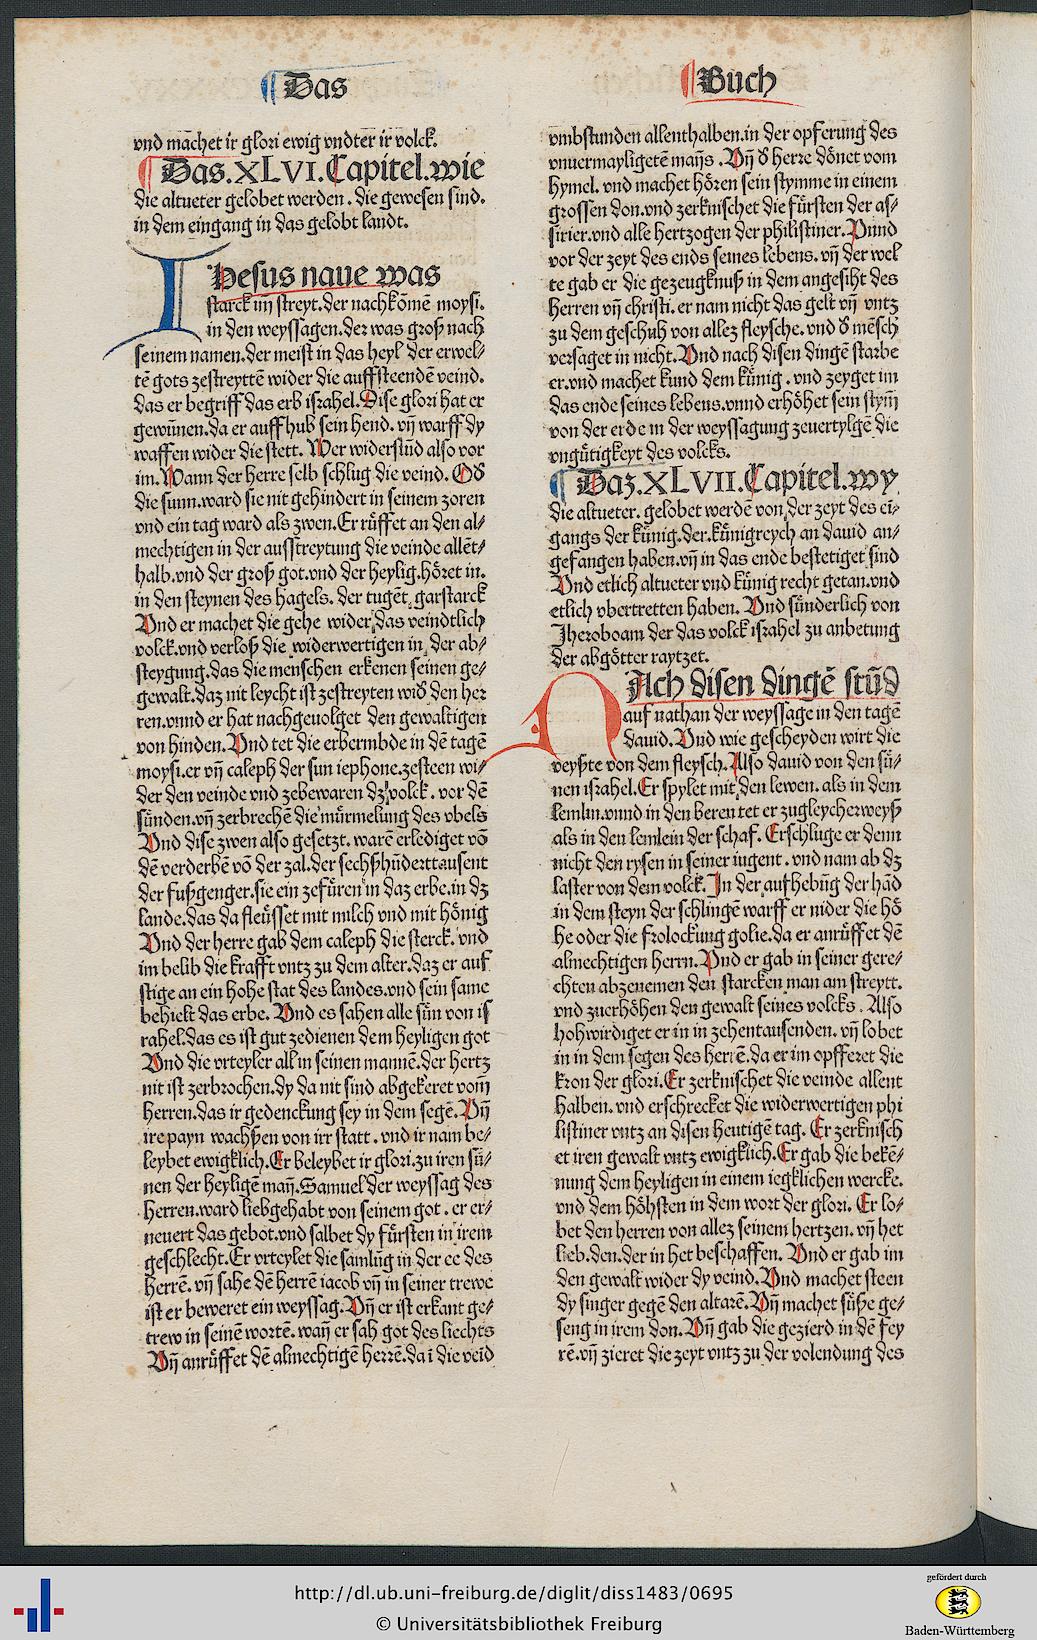 Das
Buch
vnd machet ir glori ewig vndter ir volck.
Das.XLVI.Capitel.wie
die altueter gelobet werden. die gewesen sind.
in dem eingang in das gelobt landt.
IHesus naue was
starck im streyt.der nachkōmē moysi.
in den weyssagen.dez was groß nach
seinem namen.der meist in das heyl der erwel-
tē gots zestreyttē wider die auffsteendē veind.
das er begriff das erb israhel.Dise glori hat er
gewūnen.da er auffhub sein hend. vn̄ warff dy
waffen wider die stett. Wer widerstūd also vor
im.Wann der herre selb schlug die veind. Od̕
die sunn.ward sie nit gehindert in seinem zoren
vnd ein tag ward als zwen.Er rüffet an den al-
mechtigen in der ausstreytung die veinde allēt-
halb.vnd der groß got.vnd der heylig.höret in.
in den steynen des hagels. der tugēt garstarck
Vnd er machet die gehe wider das veindtlich
volck.vnd verloß die widerwertigen in der ab-
steygung.das die menschen erkenen seinen ge-
gewalt.daz nit leycht ist zestreyten wid̕ den her
ren.vnnd er hat nachgeuolget den gewaltigen
von hinden.Vnd tet die erbermbde in dē tagē
moysi.er vn̄ caleph der sun iephone.zesteen wi-
der den veinde vnd zebewaren dz volck. vor dē
sünden.vn̄ zerbrechē die mürmelung des vbels
Vnd dise zwen also gesetzt. warē erlediget vō
dē verderbē vō der zal.der sechßhūderttausent
der fußgenger.sie ein zefüren in daz erbe.in dz
lande.das da fleüsset mit milch vnd mit hönig
Vnd der herre gab dem caleph die sterck. vnd
im belib die krafft vntz zu dem alter.daz er auf
stige an ein hohe stat des landes.vnd sein same
behielt das erbe. Vnd es sahen alle sün von is
rahel.das es ist gut zedienen dem heyligen got
Vnd die vrteyler all in seinen mannē.der hertz
nit ist zerbrochen.dy da nit sind abgekeret vom̄
herren.das ir gedenckung sey in dem segē. Vn̄
ire payn wachßen von irr statt. vnd ir nam be-
leybet ewigklich.Er beleybet ir glori.zu iren sü-
nen der heyligē man̄.Samuel der weyssag des
herren.ward liebgehabt von seinem got. er er-
neuert das gebot.vnd salbet dy fürsten in irem
geschlecht.Er vrteylet die samlūg in der ee des
herrē. vn̄ sahe dē herrē iacob vn̄ in seiner trewe
ist er beweret ein weyssag.Vn̄ er ist erkant ge-
trew in seinē wortē. wan̄ er sah got des liechts
Vn̄ anrüffet dē almechtigē herrē.da ī die veīd
vmbstunden allenthalben.in der opferung des
vnuermayligetē mans. Vn̄ d̕ herre dönet vom
hymel. vnd machet hören sein stymme in einem
grossen don.vnd zerknischet die fürsten der as-
sirier.vnd alle hertzogen der philistiner.Vnnd
vor der zeyt des ends seines lebens. vn̄ der wel
te gab er die gezeugknuß in dem angesiht des
herren vn̄ christi. er nam nicht das gelt vn̄ vntz
zu dem geschuh von allez fleysche. vnd d̕ mēsch
versaget in nicht.Vnd nach disen dingē starbe
er.vnd machet kund dem künig. vnd zeyget im
das ende seines lebens.vnnd erhöhet sein stym̄
von der erde in der weyssagung zeuertylgē die
vngütigkeyt des volcks.
Daz.XLVII.Capitel.wy
die altueter. gelobet werdē von der zeyt des ei-
gangs der künig.der.künigreych an dauid an-
gefangen haben.vn̄ in das ende bestetiget sind
Vnd etlich altueter vnd künig recht getan.vnd
etlich vbertretten haben. Vnd sünderlich von
Jheroboam der das volck israhel zu anbetung
der abgötter raytzet.
NAch disen dingē stūd
auf nathan der weyssage in den tagē
dauid.Vnd wie gescheyden wirt die
veyßte von dem fleysch.Also dauid von den sü-
nen israhel.Er spylet mit den lewen. als in dem
lemlin.vnnd in den beren tet er zugleycherweyß
als in den lemlein der schaf. Erschluge er denn
nicht den rysen in seiner iugent. vnd nam ab dz
laster von dem volck.In der aufhebūg der hād
in dem steyn der schlingē warff er nider die hö
he oder die frolockung golie.da er anrüffet dē
almechtigen herrn.Vnd er gab in seiner gere-
chten abzenemen den starcken man am streytt.
vnd zuerhöhen den gewalt seines volcks. Also
hohwirdiget er in in zehentausenden. vn̄ lobet
in in dem segen des herrē.da er im opfferet die
kron der glori.Er zerknischet die veinde allent
halben. vnd erschrecket die widerwertigen phi
listiner vntz an disen heutigē tag. Er zerknisch
et iren gewalt vntz ewigklich.Er gab die bekē-
nung dem heyligen in einem iegklichen wercke.
vnd dem höhsten in dem wort der glori. Er lo-
bet den herren von allez seinem hertzen. vn̄ het
lieb.den.der in het beschaffen. Vnd er gab im
den gewalt wider dy veind.Vnd machet steen
dy singer gegē den altarē.Vn̄ machet süße ge-
seng in irem don.Vn̄ gab die gezierd in dē fey
rē.vn̄ zieret die zeyt vntz zu der volendung des
http://dl.ub.uni-freiburg.de/diglit/diss1483/0695
© Universitätsbibliothek Freiburg
gefördert durch
Baden-Württemberg